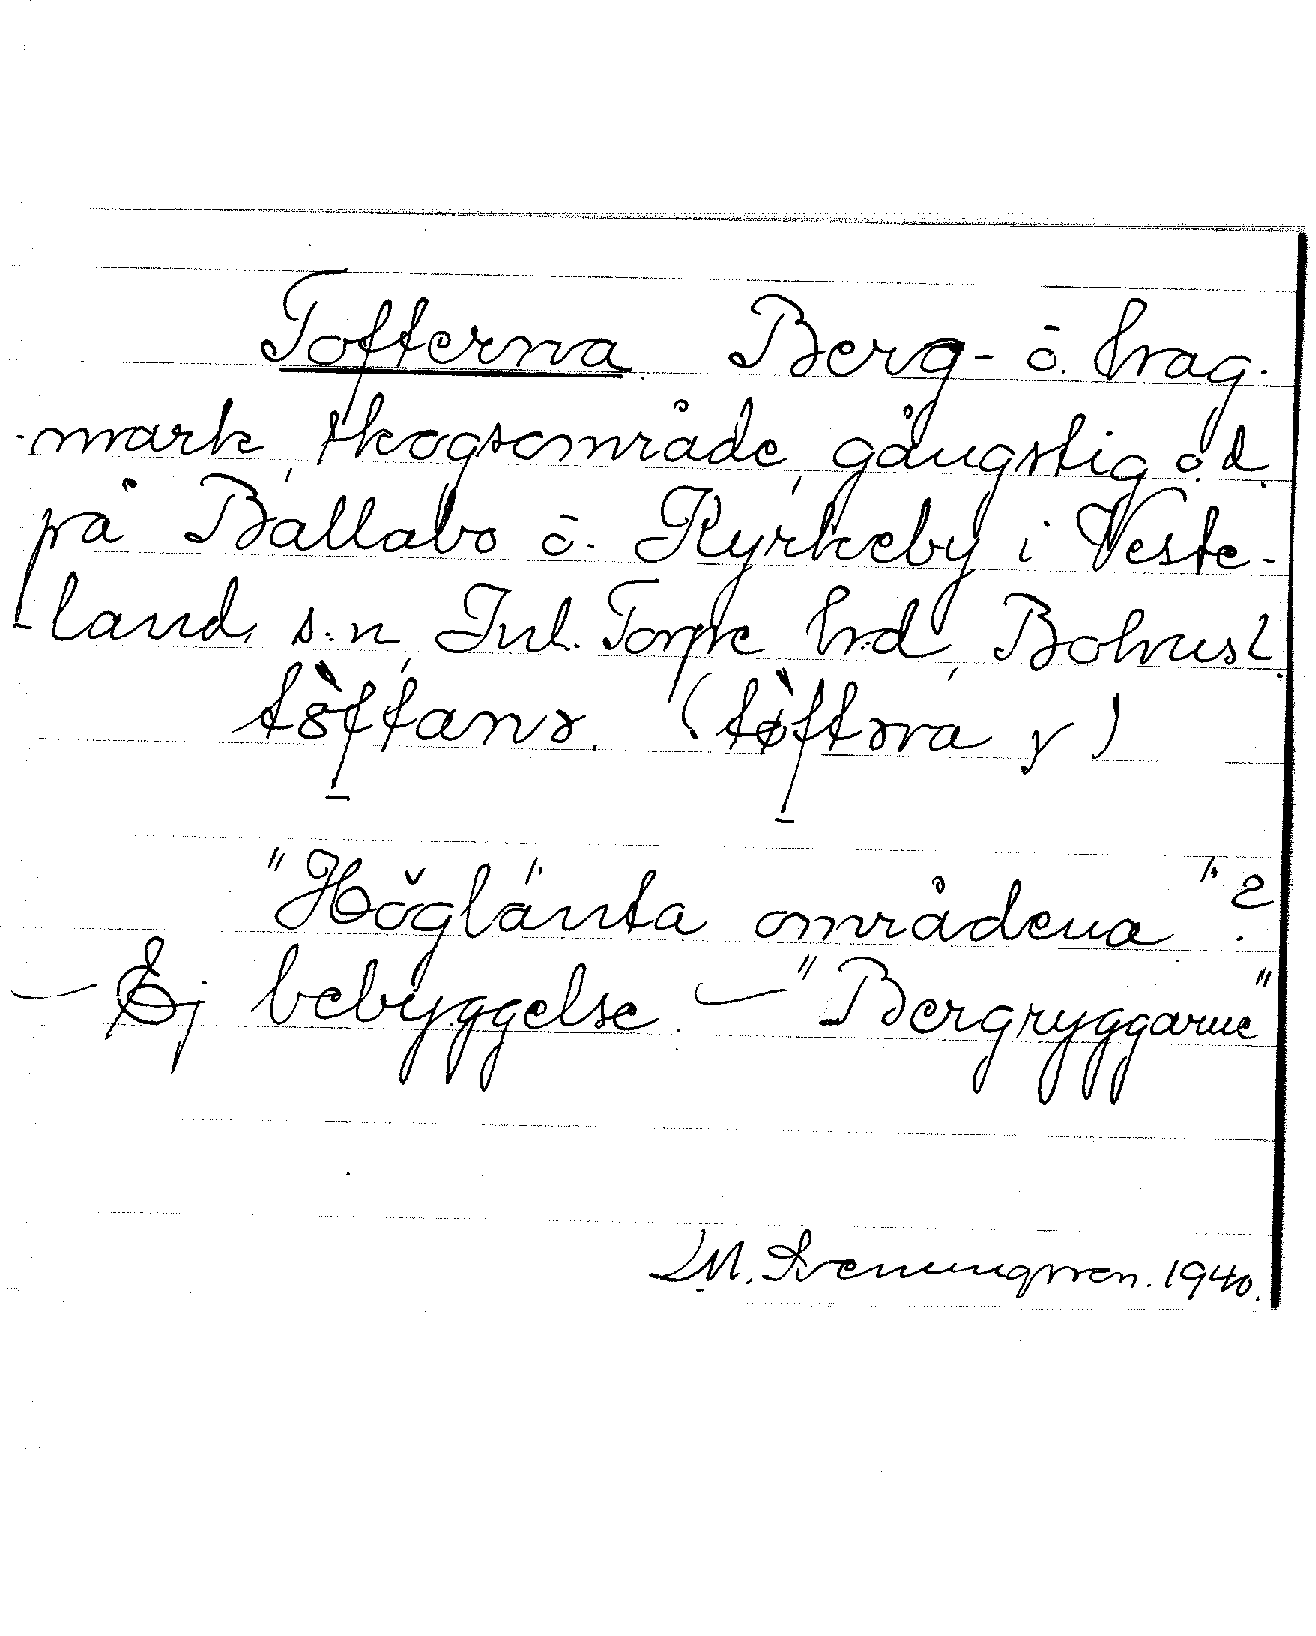 Tofterna Berg- o. hag-
mark, skogsområde, gångstig o.d.
på Ballabo o. Kyrkeby i Veste-
land, s:n, Inl. Torpe hd, Bohusl.
tòftanə. (tø̀ftəra y)
"Höglänta områdena"?
— Ej bebyggelse. — "Bergryggarne"
M. Sveningsson. 1940.